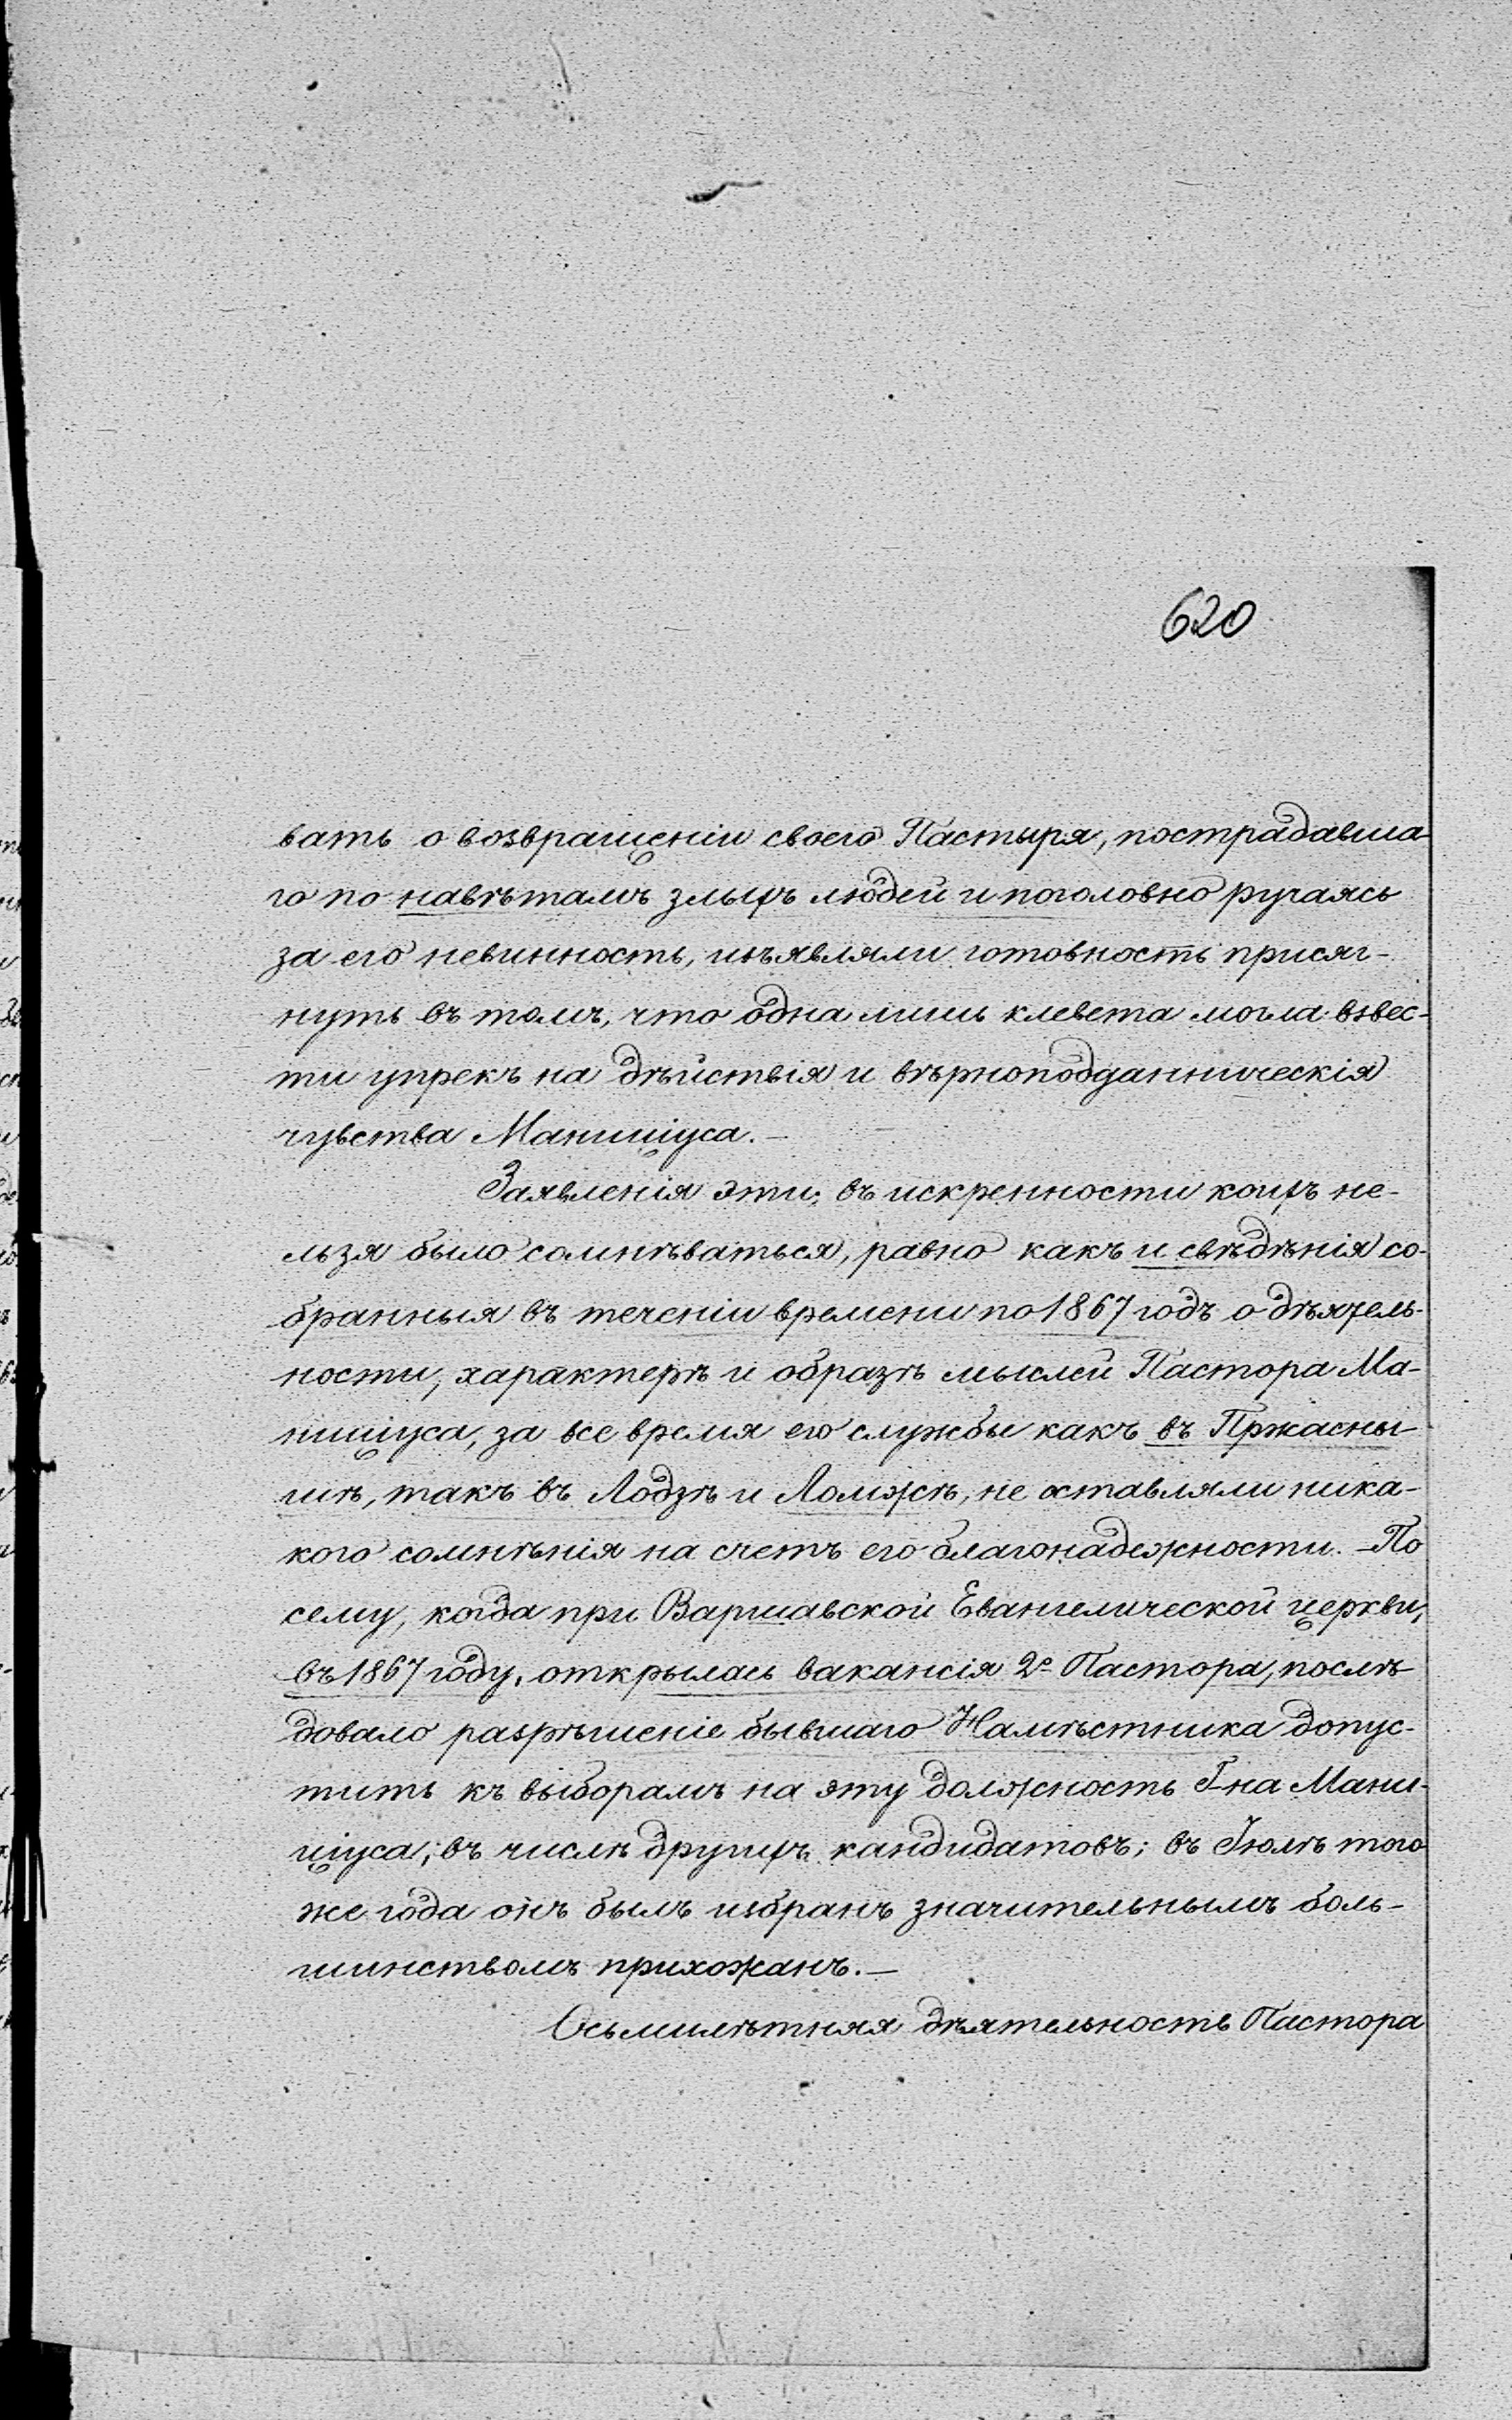 620
вать о возвращеніи своего Пастыря, пострадавша-
го по навѣтамъ злыхъ людей и поголовно ручаясь
за его невинность, изъявляли готовность присяг-
нуть въ томъ, что одна лишь клевета могла взвес-
ти упрекъ на дѣйствія и вѣрноподданническія
чувства Маниціуса.—
Заявленія эти, въ искренности коихъ не-
льзя было сомнѣваться, равно какъ и свѣдѣнія со-
бранныя въ теченіи времени по 1867 годъ о дѣятель-
ности, характерѣ и образѣ мыслей Пастора Ма-
ниціуса, за все время его службы какъ въ Пржасны-
шѣ, такъ въ Лодзѣ и Ломжѣ, не оставляли ника-
кого сомнѣнія на счетъ его благонадежности.—По
сему, когда при Варшавской Евангелической церкви,
въ 1867 году, открылась вакансія 2го Пастора, послѣ-
довало разрѣшеніе бывшаго Намѣстника допус-
тить къ выборамъ на эту должность Г-на Мани-
ціуса, въ числѣ другихъ кандидатовъ; въ Іюлѣ того
же года онъ былъ избранъ значительнымъ боль-
шинствомъ прихожанъ.—
Осьмилѣтняя дѣятельность Пастора